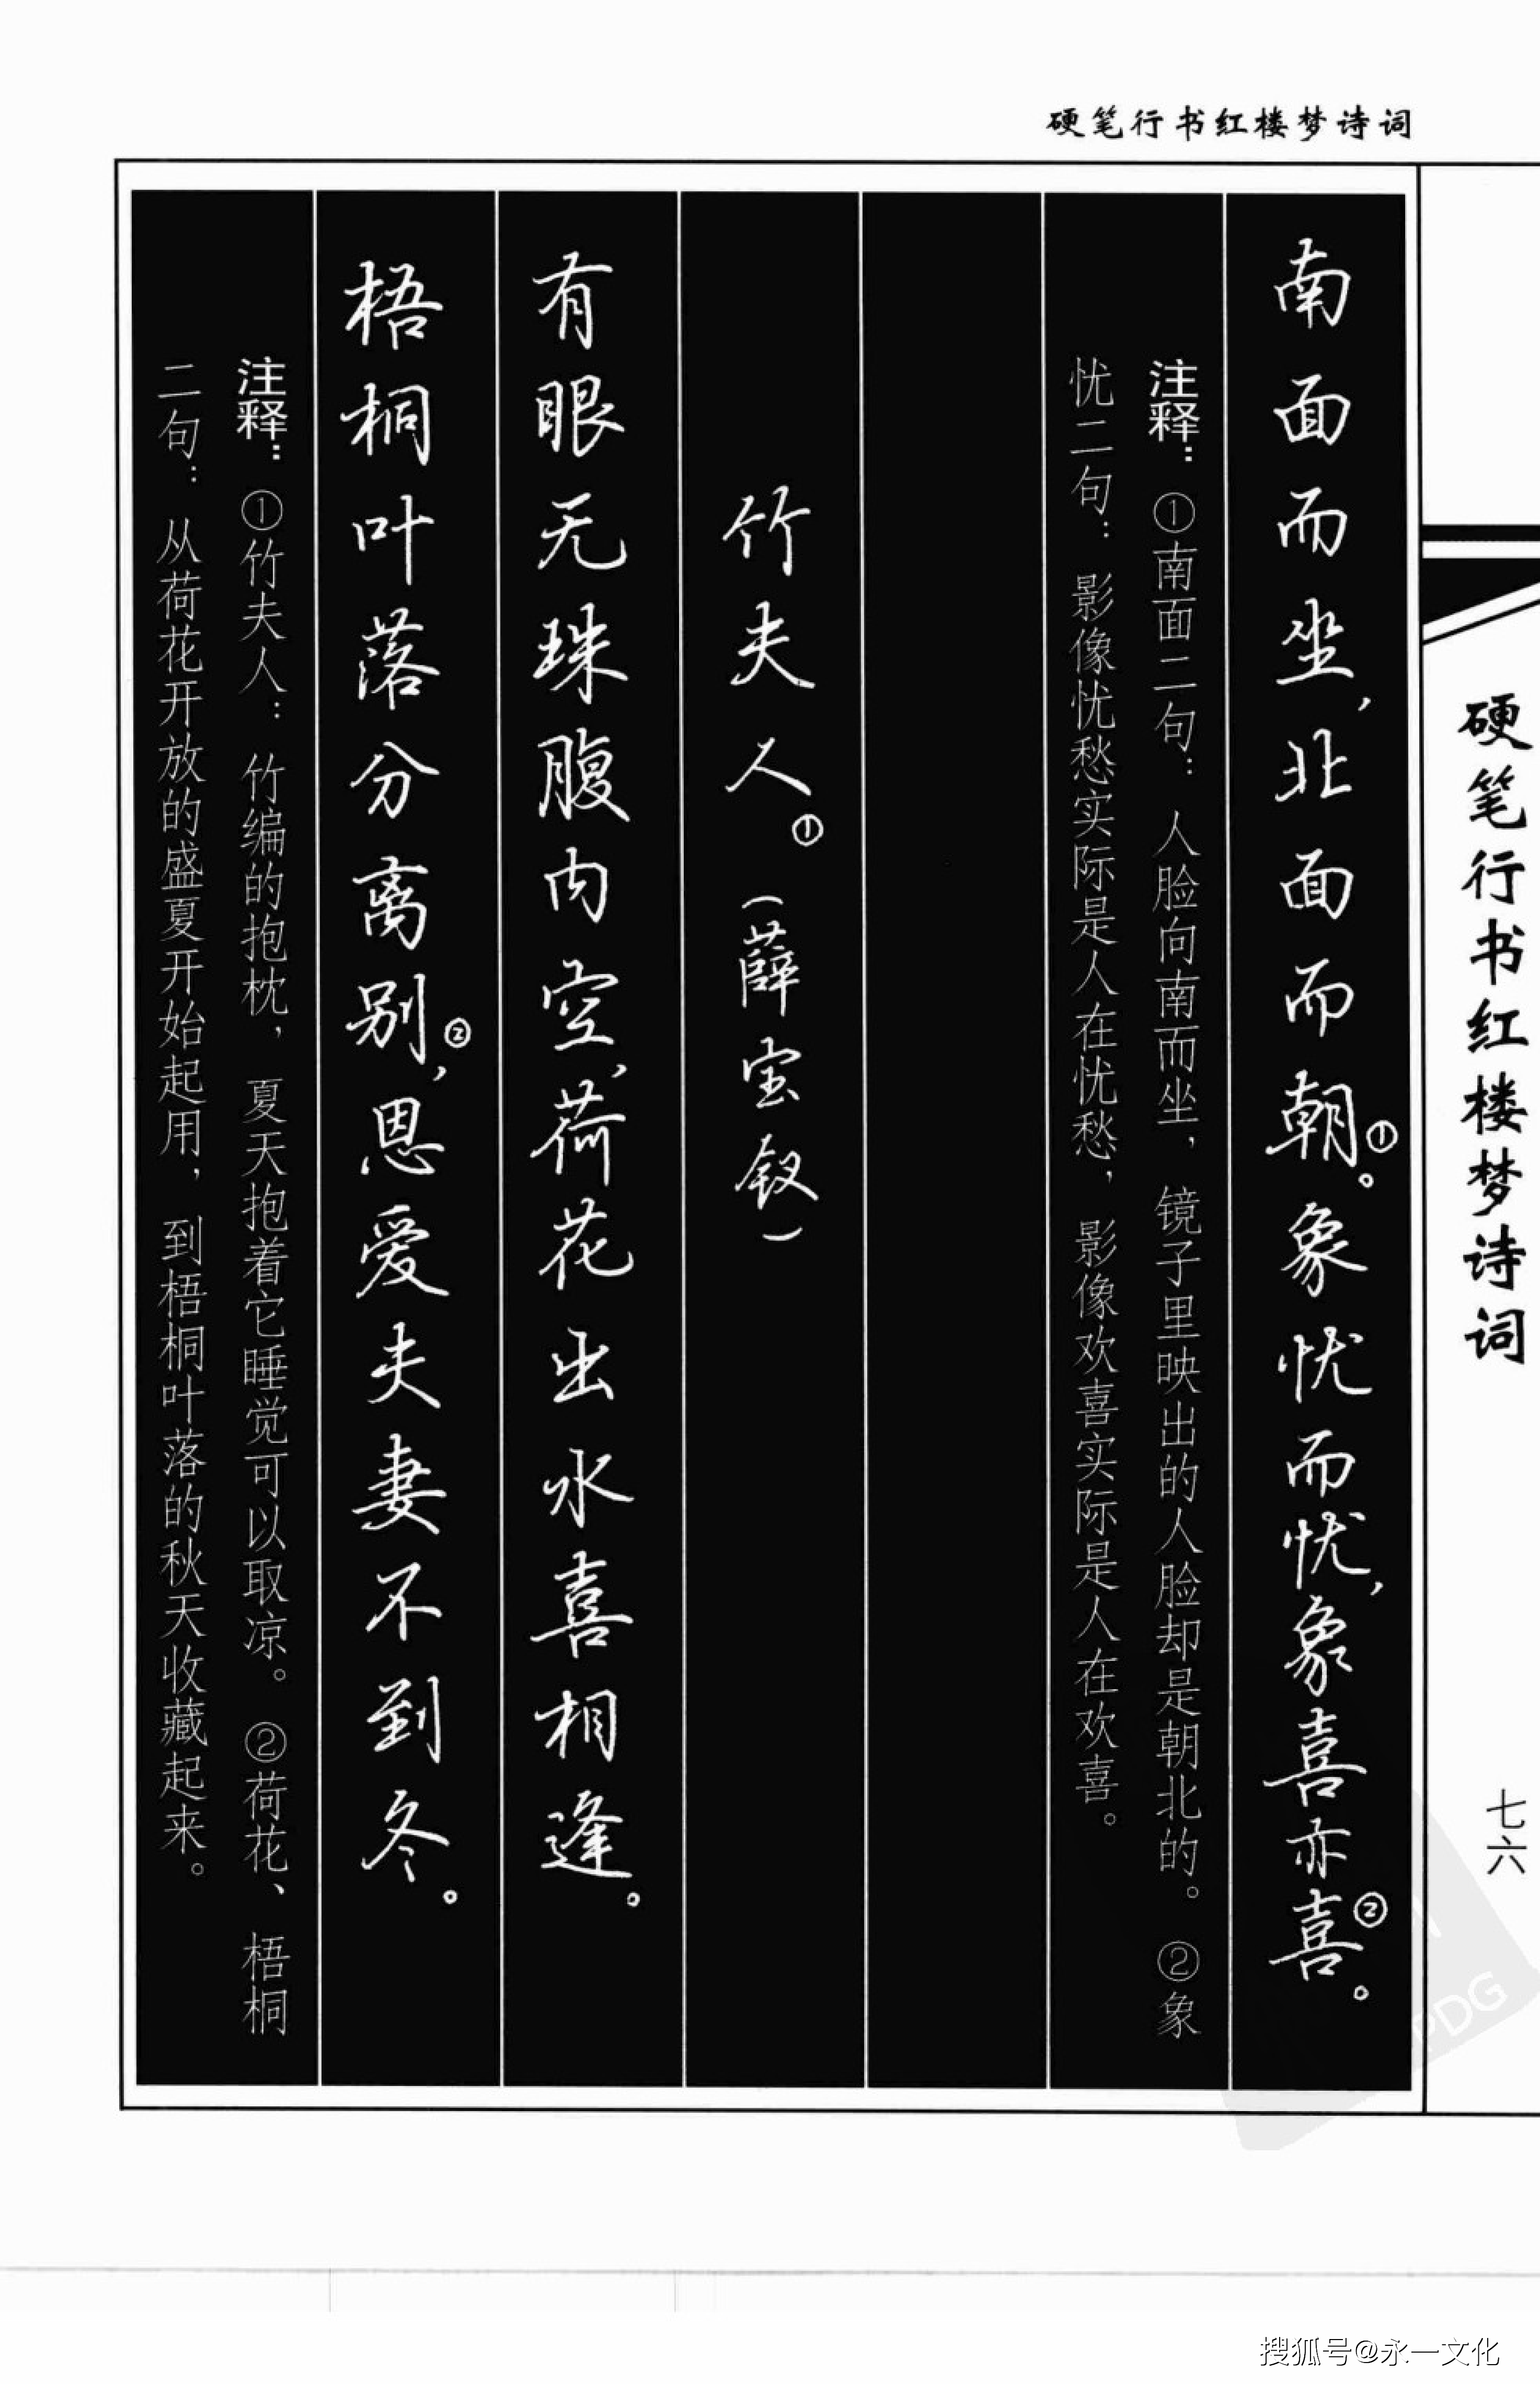 硬笔行书红楼梦诗词
南面而坐，北面而朝①。象忧而忧，象喜亦喜②。
注释：①南面二句：人脸向南而坐，镜子里映出的人脸却是朝北的。②象
忧二句：影像忧愁实际是人在忧愁，影像欢喜实际是人在欢喜。
竹夫人①（薛宝钗）
有眼无珠腹内空，荷花出水喜相逢。
梧桐叶落分离别②，恩爱夫妻不到冬。
注释：①竹夫人：竹编的抱枕，夏天抱着它睡觉可以取凉。②荷花、梧桐
二句：从荷花开放的盛夏开始起用，到梧桐叶落的秋天收藏起来。
硬笔行书红楼梦诗词
七六
PDG
搜狐号@永一文化